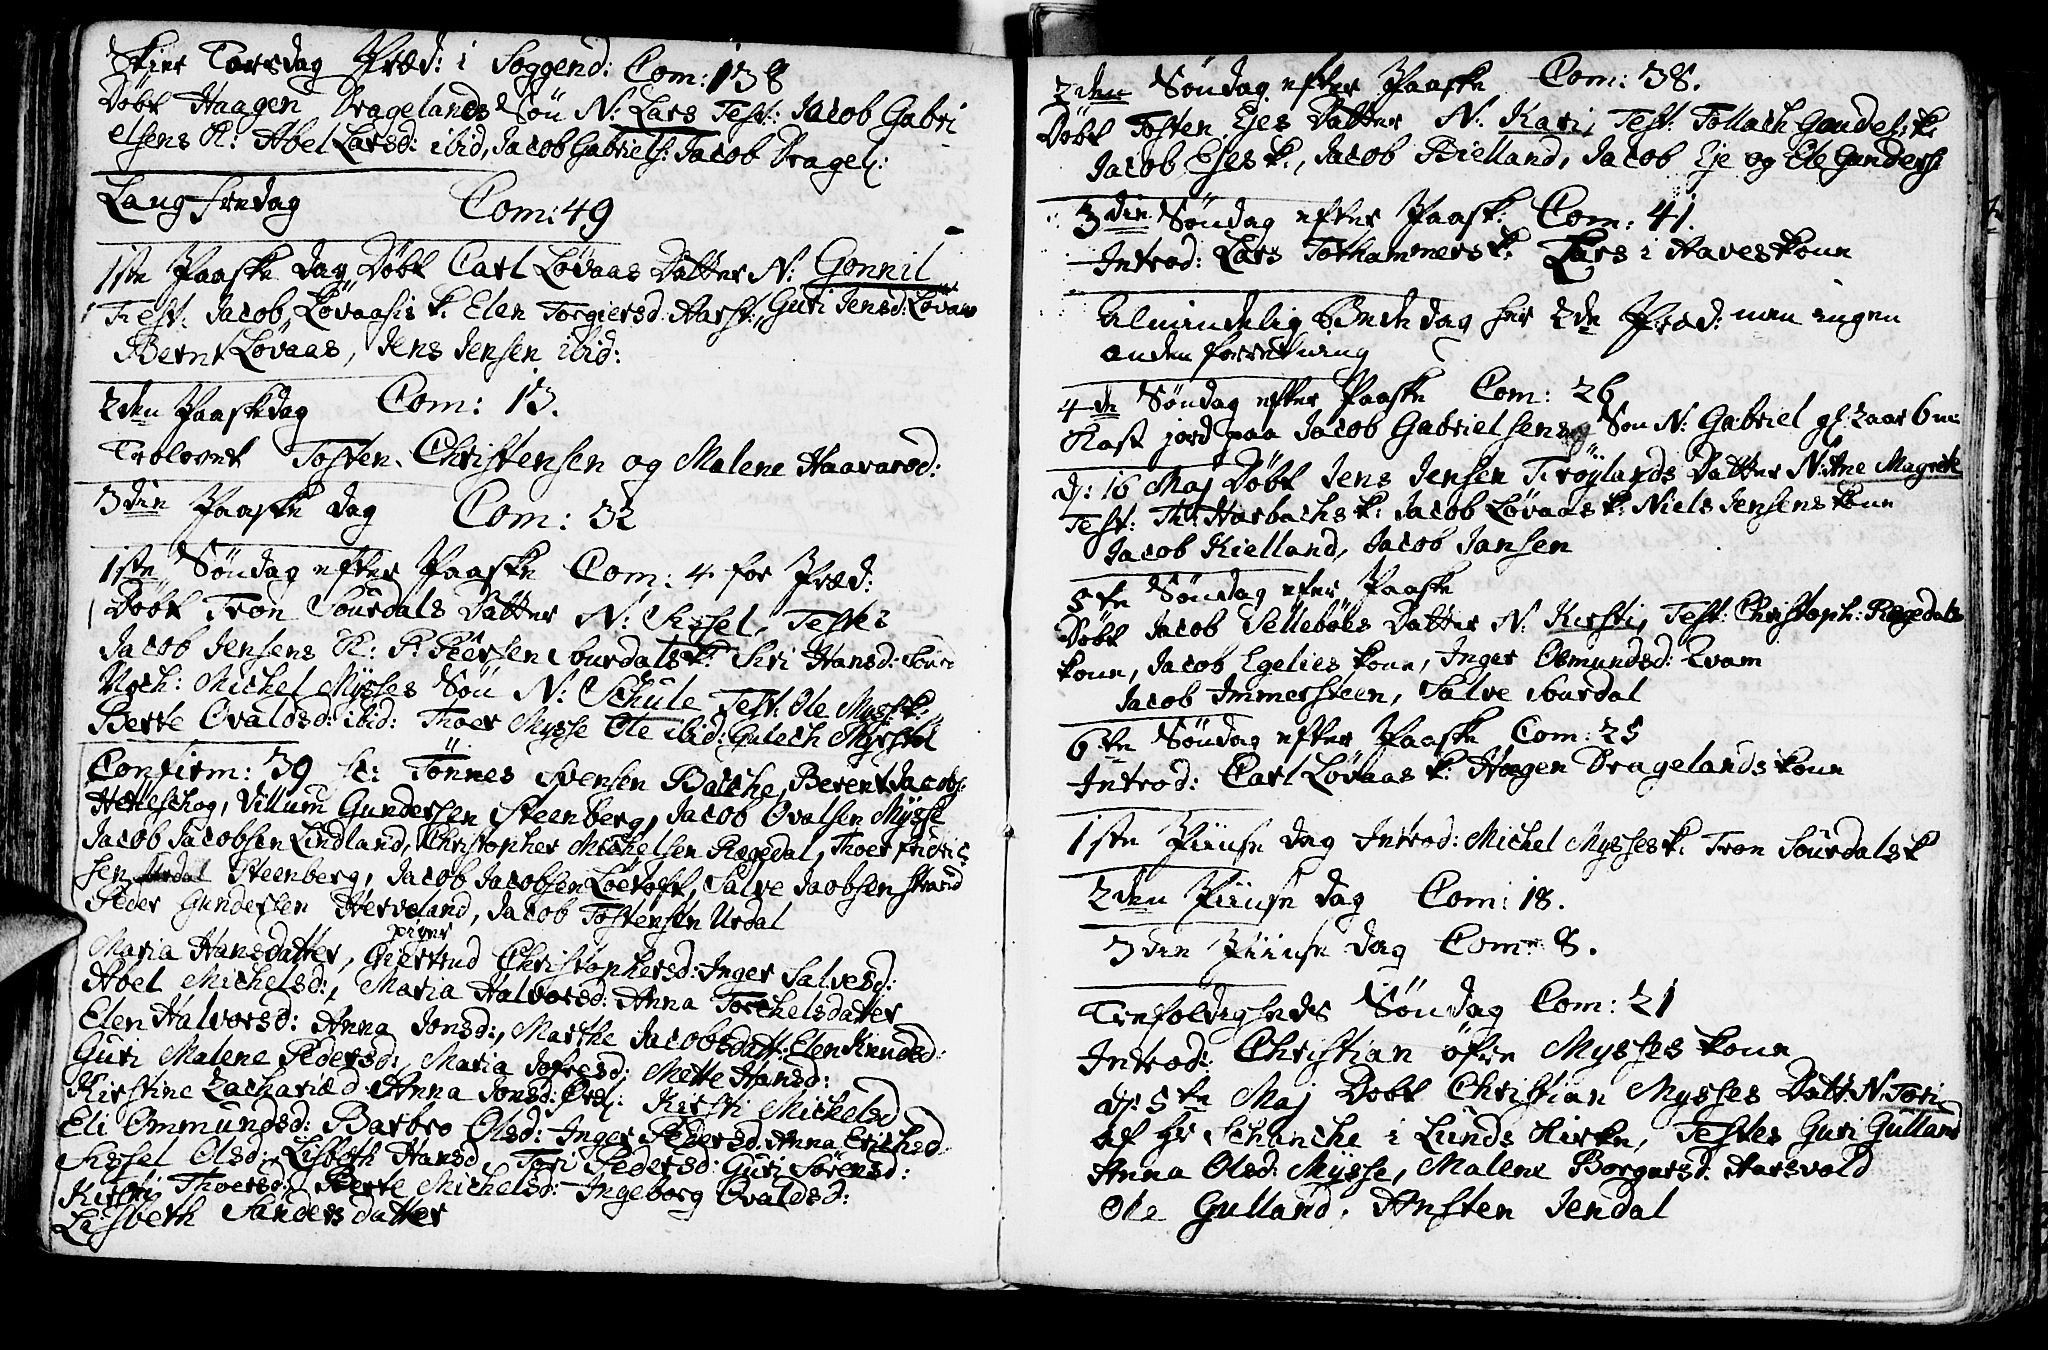 Skier Torsdag Præd: i Soggend: Com: 138
Döbt Haagen Dragelands Søn N: Lars Test: Jacob Gabri
elsens K: Abel Larsd: ibid, Jacob Gabriels: Jacob Dragel:
Lang fredag Com: 49
1ste Paaske dag Døbt Carl Løvaas Datter N: Gonnil
Test: Jacob Løvaasis k. Elen Torgiersd. Aarst:, Guri Jensd: Løvaas
Bernt Løvaas, Jens Jensen ibid:
2den Paaskedag Com: 13.
Trolovet Tosten Christensen og Malene Haavarsd:
3die Paaske dag Com: 32
1ste Søndag efter Paaske Com: 4 for Præd:
Døbt Tron Sourdals Datter N: Sissel, Testes
Jacob Jensens K: P. Peersen Sourdals k: Siri Hansd: Sourd
Noch: Michel Mysses Søn N: Schule Test: Ole Mysse k:
Berte Ovaldsd: ibid: Thoer Mysse Ole ibid: Gulech Myrstøl
Confirm: 39 sc: Tönnes Svensen Bakche, Berent Jacobs:
Helleschog, Villum Gundersen Steenberg, Jacob Ovalsen Mysse
Jacob Jacobsen Lindland, Christopher Michelsen Regedal, Thoer Fridric
sen Steenberg, Jacob Jacobsen Løetoft, Salve Jacobsen Strand
Peder Gundersen Herveland, Jacob Tostensen Urdal
piger
Maria Hansdatter, Chertrud Christophersd: Inger Salvesd:
Abel Michelsd:, Maria Halvorsd: Anna Torchelsdatter
Elen Halvorsd: Anna Jonsd:, Marthe Jacobsdatt: Elen Knudsd:
Guri Malene Pedersd:, Maria Tofresd: Mette Hansd:
Kirstine Zachariæd. Anna Jonsd: Ørsl: Kirsti Michelsd
Eli Ommundsd: Barbro Olsd: Inger Pedersd: Anna Erichsd
Sissel Olsd: Lisbeth Hansd, Tori Pedersd: Guri Sörensd:
Kirsti Thoersd: Berte Michelsd: Ingeborg Ovaldsd:
Lisbeth Sandersdatter
2den Søndag efter Paaske Com: 38.
Döbt Tosten Ejes Datter N. Kari, Test: Tollach Goudel: k.
Jacob Ejes k., Jacob Bielland, Jacob Eje og Ole Gunders:
3die Søndag efter Paask: Com: 41.
Introd: Lars Tothammers k. Lars i Haves Kone
Almindelig Bededag her 2de Præd: men ingen
anden forretning
4de Søndag efter Paaske Com: 26
Kast jord paa Jacob Gabrielsens Søn N: Gabriel gl: 2 aar 6 m:
d: 16 Maj Døbt Jens Jensen Tröylands Datter N: Ane Magrete
Test: Th: Harbachs k: Jacob Løvaas k: Niels Jensens Kone
Jacob Kielland, Jacob Jansen
5te Søndag efter Paaske
Døbt Jacob Selleböes Datter N: Kirsti, Test: Christoph: Regedals
kone, Jacob Egelies kone, Inger Osmundsd: Evam
Jacob Immersteen, Salve Sourdal
6te Søndag efter Paaske Com: 25
Introd: Carl Løvaas k: Hagen Dragelands kone
1ste Pintse dag Introd: Michel Mysses k: Tron Sourdals k
2den Pintse dag Com: 18.
3die Pintse dag Com: 8.
Trefoldigheds Søndag Com: 21
Introd: Christian øfre Mysses kone
d: 5te Maj Døbt Christian Mysses Datt: N. Tori
af Hr Schanche i Lunds Kirke, Testes Guri Gulland
Anna Olsd: Mysse, Malene Borgersd: Aarsvold
Ole Gulland, Ansten Jendal